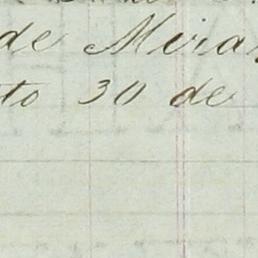 de Mira
to 30 de